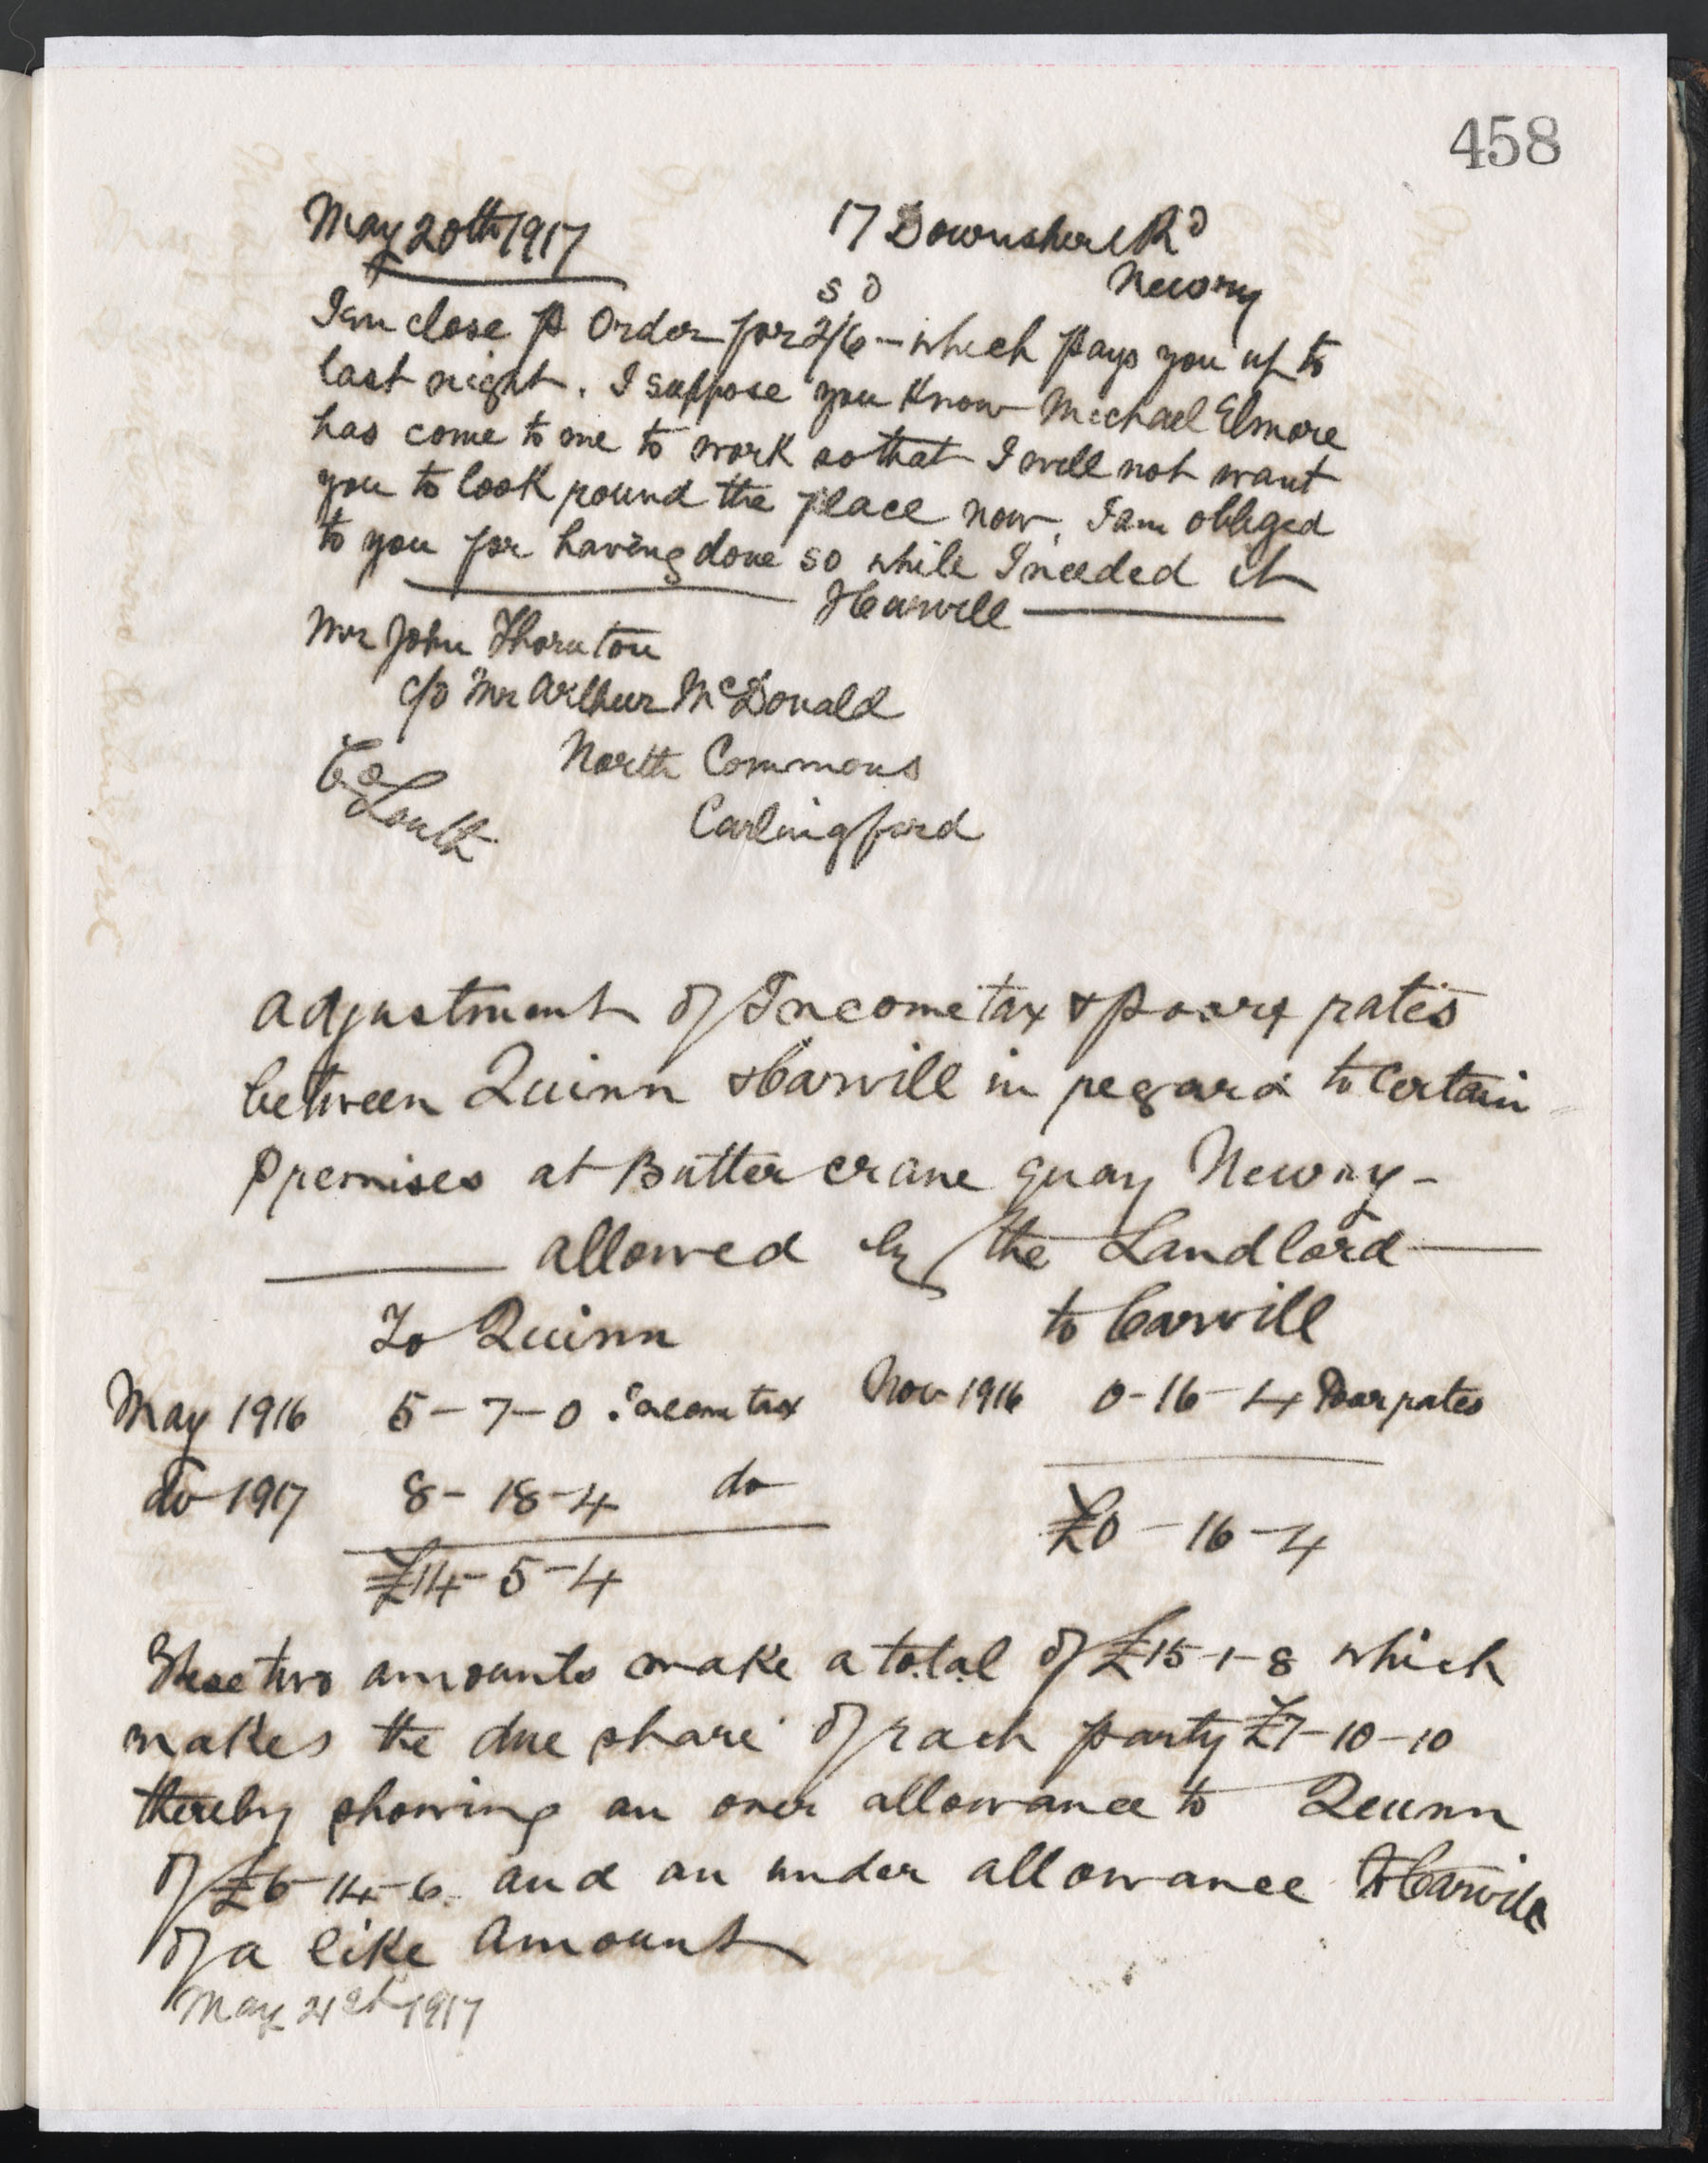 458
May 20th 1917
17 Downshire Rd
Newry
s d
I enclose P Order for 2/6 - which pays you up to
last night. I suppose you know Michael Elmore
has come to me to work so that I will not want
you to look round the place now. I am obliged
to you for having done so while I needed it
JCarvill
Mr John Thornton
c/o Mr Arthur McDonald
North Commons
Carlingford
Co Louth
Adjustment of Income tax & poor rates
between Quinn & Carvill in regard to Certain
Premises at Butter crane quay Newry -
allowed by the Landlord
To Quinn
to Carvill
May 1916 5-7-0 income tax Nov 1916 0-16-4 Poor rates
do 1917 8-18-4 do
£0-16-4
£14-5-4
These two amounts make a total of £15-1-8 which
makes the due share of each party £7-10-10
thereby showing an over allowance to Quinn
of £6-14-6 and an under allowance to Carvill
of a like amount
May 21st 1917